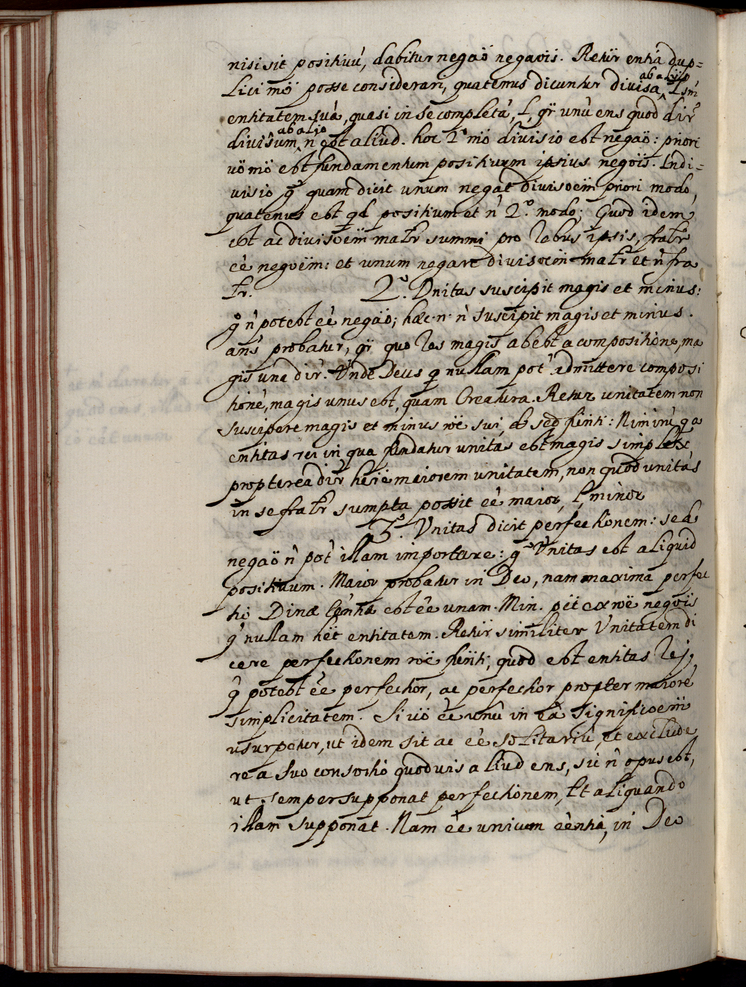 nisi sit positivũ, dabitur negaõ negaõis. Retũr entia dup=
lici mõ posse considerari, quatenus dicuntur divisa ab alijs,
entitatem suã, quasi in se completã, l, qr̃ unũ ens quod dir̃
divisum ab alio ñ est aliud. hoc 2º mõ divisio est negaõ: priori
võ mõ est fundamentum positivum ipsius negõis. Indi=
visio g̃ quam dicit unum negat divisoẽm priori modo,
quatenus est qd positivum et ñ 2º modo; Quod idem
est ac divisoẽm matr̃ summi pro rebus ipsis, fratr̃
ẽe negoẽm: et unum negare divisoem matr̃ et ñ fra
tr̃. 2º. Unitas suscipit magis et minus:
g̃ ñ potest ẽe negaõ; hæc .n. ñ suscipit magis et minus.
añs probatur, qr̃ quo res magis abest a compositione, ma
gis una dir̃. Unde Deus q nullam pot̃ admittere composi
tionẽ, magis unus est, quam Creatura. Retur unitatem non
suscipere magis et minus rõe sui, sed fũti: Nimirũ qa
entitas rei in qua fundatur unitas est magis simplex
propterea dir̃ hẽre maiorem unitatem, non quod unitas
in se fratr̃ sumpta possit ẽe maior, l, minor
3º. Unitas dicit perfectionem: sed
negaõ ñ pot̃ illam importare: g̃ Unitas est aliquid
positivum. Maior probatur in Deo, nam maxima perfec
tio Dinæ est ẽe unam. Min. pẽt ex rõe negõis
q̃ nullam hẽt entitatem. Retũr similiter Unitatem di
cere perfectionem rõe fũti, quod est entitas rej,
q̃ potest ẽe perfectior, ac perfectior propter maiorẽ
simplicitatem. Si võ ẽe unũ in eã significõem
usurpatur, ut idem sit ac ẽe solitariũ, et exclude
re a suo consortio quodvis aliud ens, sic ñ opus est,
ut semper supponat perfectionem, Et aliquando
illam supponat. Nam ẽe unicum in Deo